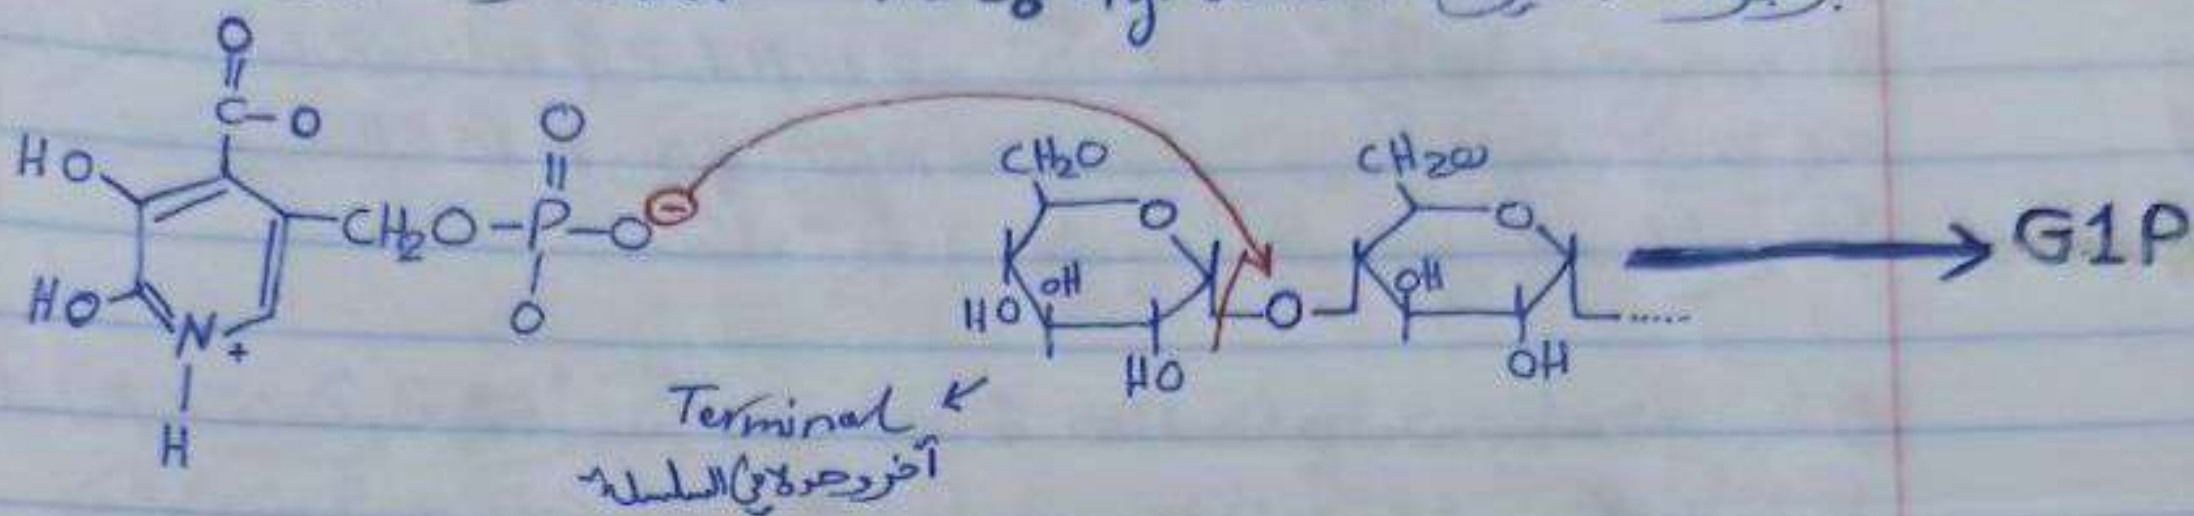 O
C-O
HO
O
CH2O-P-O-
O
HO
N+
H
CH2O
O
OH
HO
HO
O
CH2OH
O
OH
OH
G1P
Terminal
آخر وحدة في السلسلة